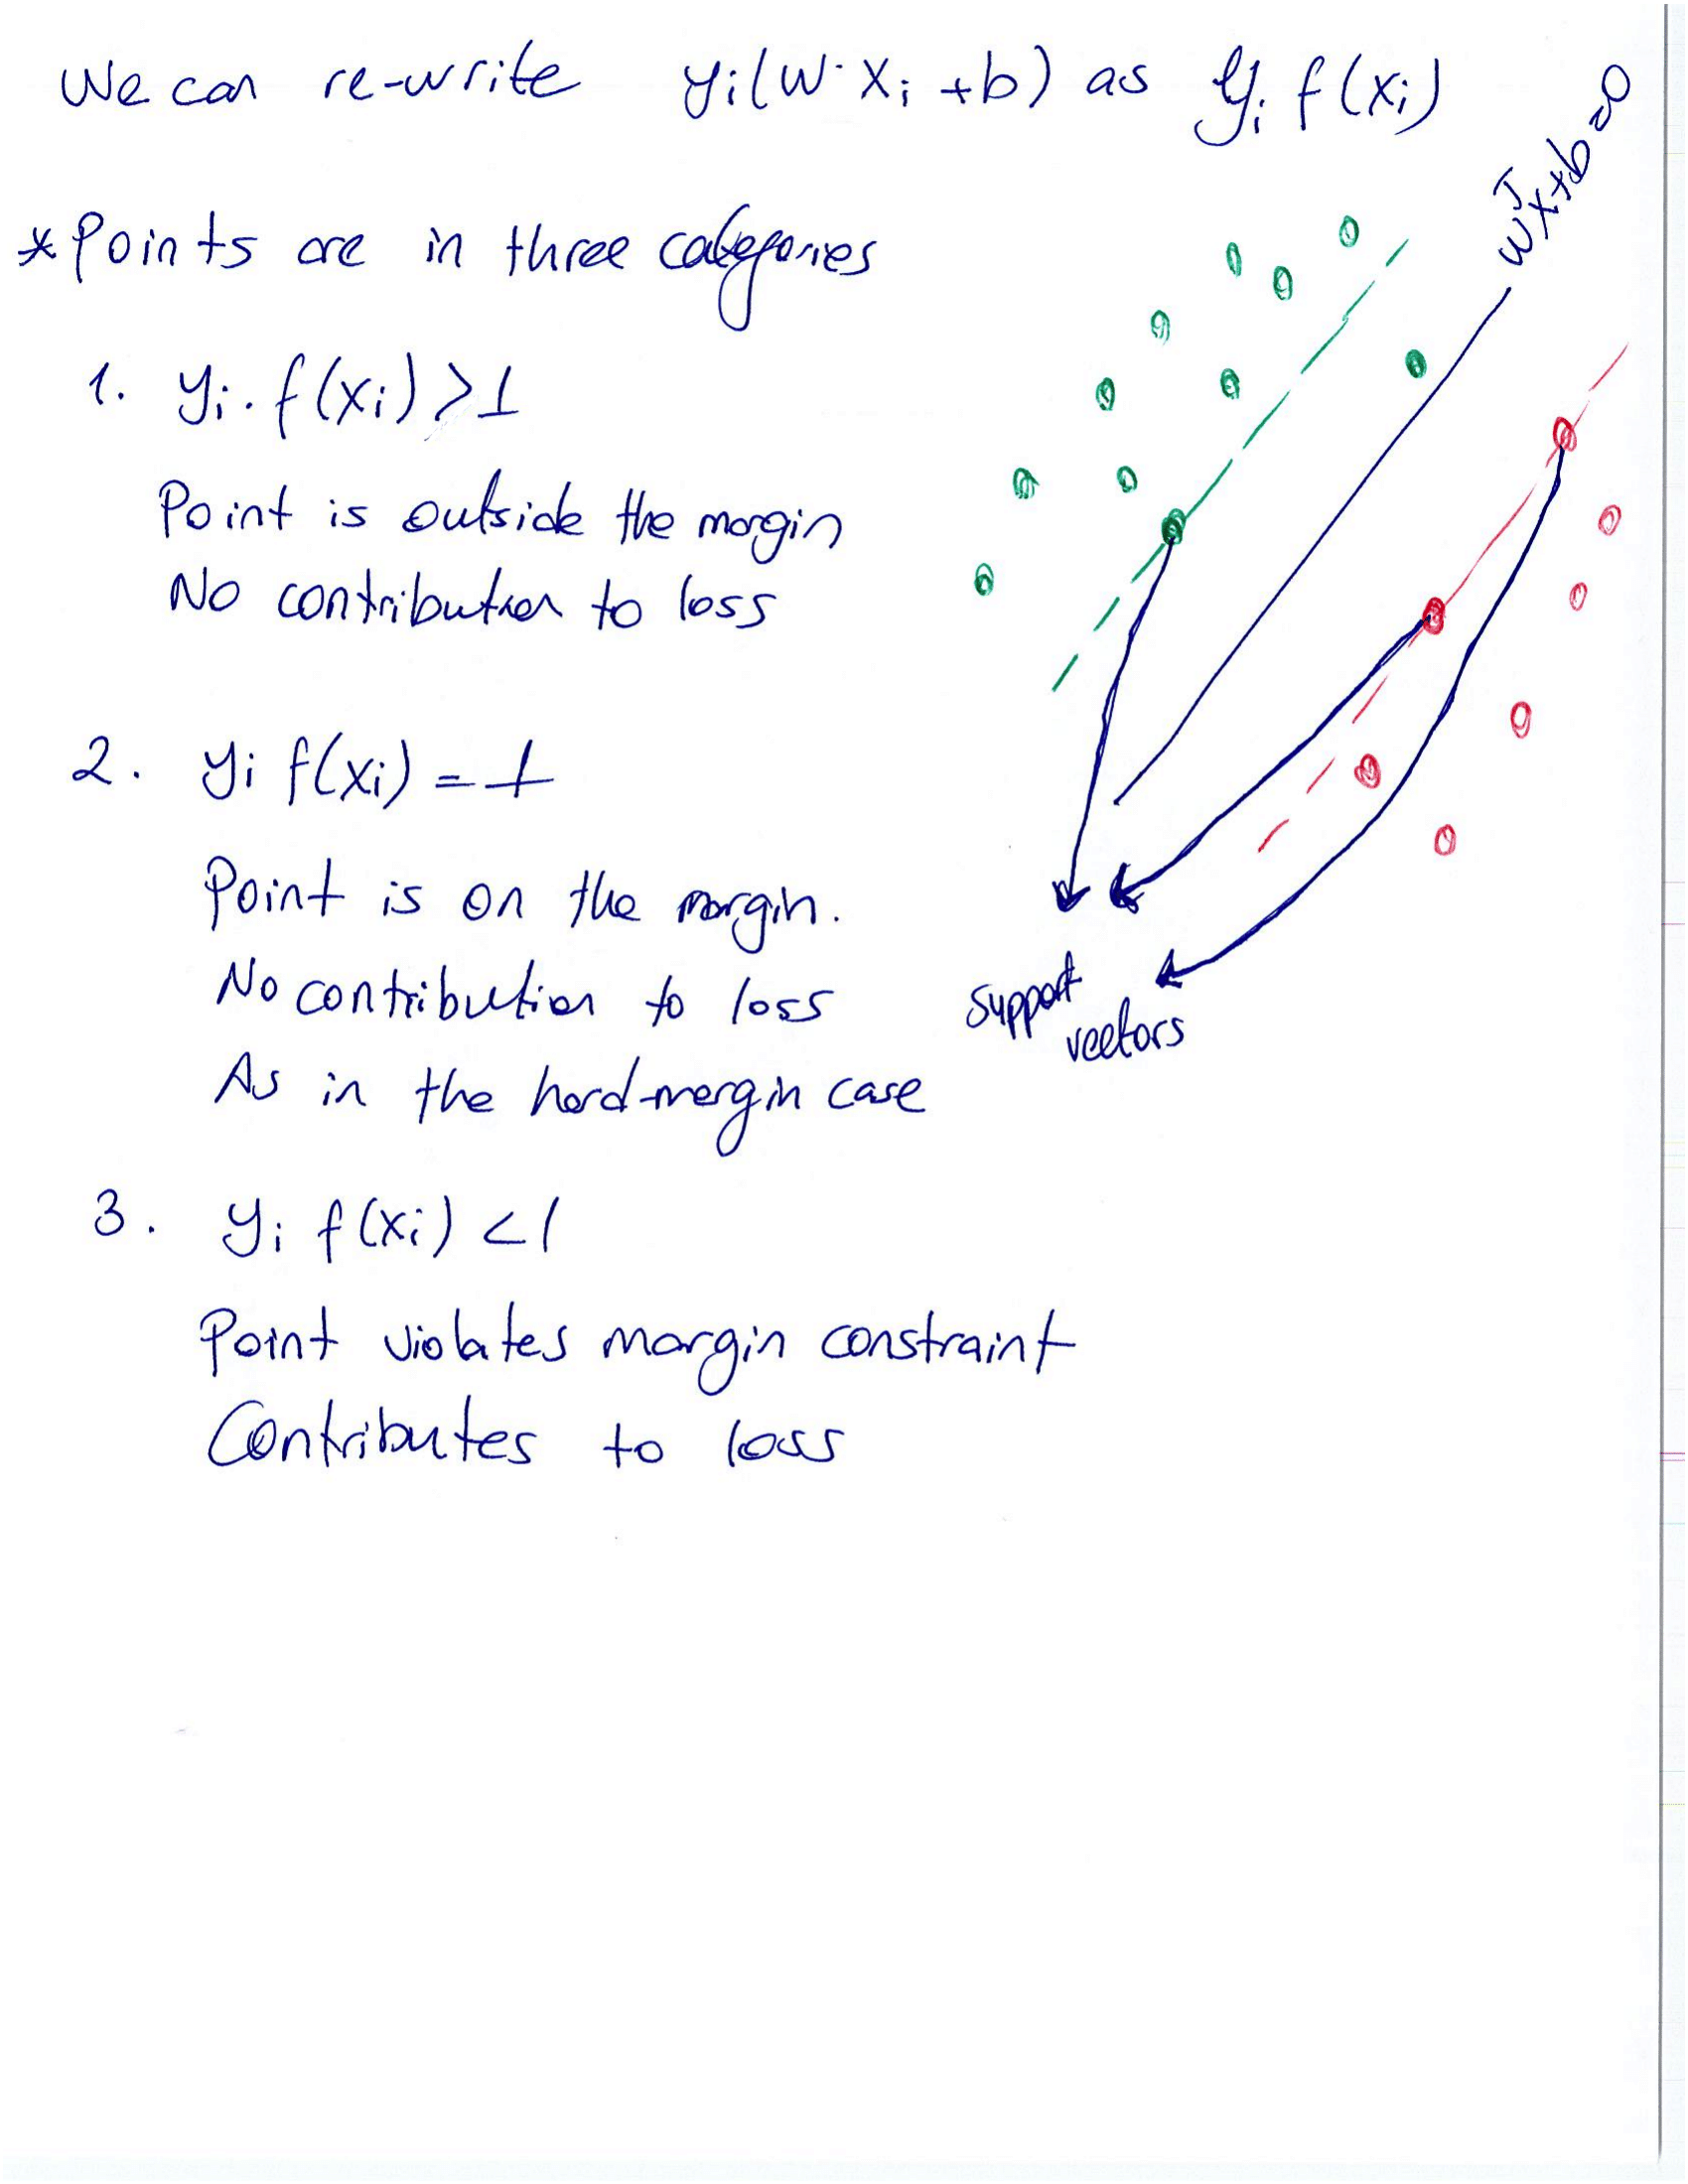 We can re-write yi(w·xi+b) as yi f(xi)
wᵀx+b=0
*Points are in three categories
1. yi.f(xi)>1
Point is outside the margin
No contribution to loss
2. yi f(xi)=1
Point is on the margin.
No contribution to loss
As in the hard-margin case
support
vectors
3. yi f(xi)<1
Point violates margin constraint
Contributes to loss